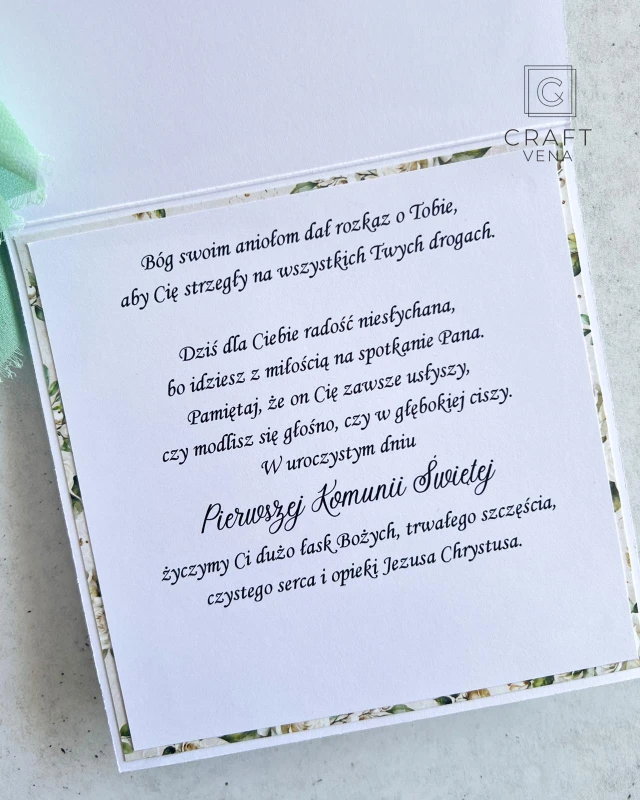 CRAFT
VENA
Bóg swoim aniołom dał rozkaz o Tobie,
aby Cię strzegły na wszystkich Twych drogach.
Dziś dla Ciebie radość niesłychana,
bo idziesz z miłością na spotkanie Pana.
Pamiętaj, że on Cię zawsze usłyszy,
czy modlisz się głośno, czy w głębokiej ciszy.
W uroczystym dniu
Pierwszej Komunii Świętej
życzymy Ci dużo łask Bożych, trwałego szczęścia,
czystego serca i opieki Jezusa Chrystusa.